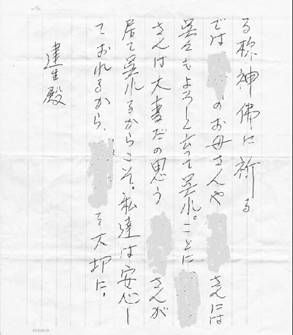 る様神佛に祈る
では のお母さんや さんには
呉々もよろしく云って呉れ。ことに
さんは大変だの思う さんが
居て呉れるからこそ。私達は安心し
ておれるから、 を大切に。
達生殿